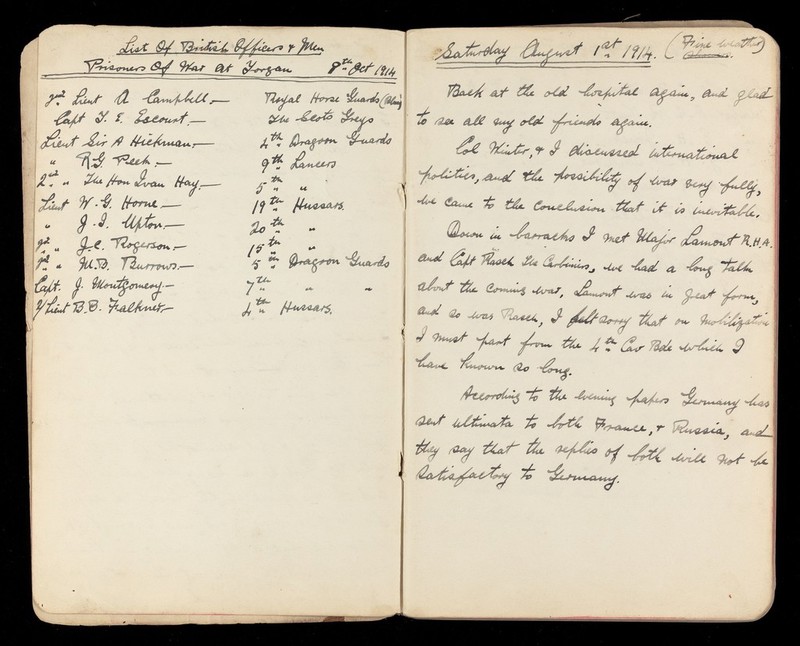 List Of British Officers & Men
Prisoners Of War at Torgau 8th Oct 1914
2nd Lieut A Campbell.— Royal Horse Guards (Blue)
Capt T. E. Escourt.— The Scots Greys
Lieut Sir A Hickman.— 4th Dragoon Guards
" R G Peek.— 9th Lancers
2nd " The Hon Ivan Hay.— 5th "
Lieut W. G. Horne.— 19th Hussars.
" J. I. Upton.— 20th "
2nd " J. C. Rogerson.— 15th "
2nd " M. B. Burrows.— 5th Dragoon Guards
Capt. J. Montgomery.— 7th " "
2/Lieut B. B. Falkner.— 4th Hussars.
Saturday August 1st 1914. (Fine Weather)
Back at the old hospital again, and glad
to see all my old friends again.
Col Winter, & I discussed international
politics, and the possibility of war very fully,
we came to the conclusion that it is inevitable.
Down in barracks I met Major Lamont R.H.A.
and Capt Rasch The Carbiniers, we had a long talk
about the coming war, Lamont was in great form,
and so was Rasch, I felt sorry that on mobilization
I must part from the 4th Cav Bde which I
have known so long.
According to the evening papers Germany has
sent ultimata to both France, & Russia, and
they say that the replies of both will not be
satisfactory to Germany.